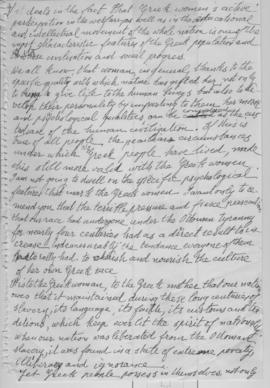 It deals in the fact that Greek women's active
participation in the welfare as well as in the educational
and intellectual movement of the whole nation is one of the
most characteristic features of the Greek population and
civilization and social progress.
We all know that woman, in general, thanks to the
specific quality with which nature has gifted her not only
to give life to the human beings but also to de-
velop their personality by imparting to them her moral
and psychological qualities can be considered as the cus-
todian of the human civilization. If this is
true of all people, the peculiar circumstances
under which Greek people have lived, made
this still more valid with the Greek women
I am not going to dwell on the specific psychological
features that mark the Greek women. I am obviously to re-
mind you that the terrible pressure and fierce persecution
that our race had undergone under the Ottoman Tyranny
for nearly four centuries had as a direct result to in-
crease the tendance everyone of them
naturally had to cherish and nourish the culture
of her own Greek race
It is to the Greek woman, to the Greek mother that our nation
owes that it maintained during these long centuries of
slavery, its language, its faith, its customs and tra-
ditions, which keep over all the spirit of nation
when our nation was liberated from the Ottoman
slavery, it was found in a state of extreme poverty
illiteracy and ignorance.
Yet Greek people possess in themselves not only